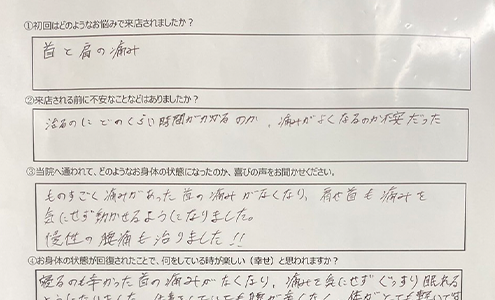 ①初回はどのようなお悩みで来店されましたか？
首と肩の痛み
②来店される前に不安なことなどはありましたか？
治るのにどのくらい時間がかかるのか、痛みがよくなるのか不安だった
③当院へ通われて、どのようなお身体の状態になったのか、喜びの声をお聞かせください。
ものすごく痛みがあった首の痛みがなくなり、肩や首も痛みを
気にせず動かせるようになりました。
慢性の腰痛も治りました!!
④お身体の状態が回復されたことで、何をしている時が楽しい（幸せ）と思われますか？
寝るのも辛かった首の痛みがなくなり、痛みを気にせずぐっすり眠れる